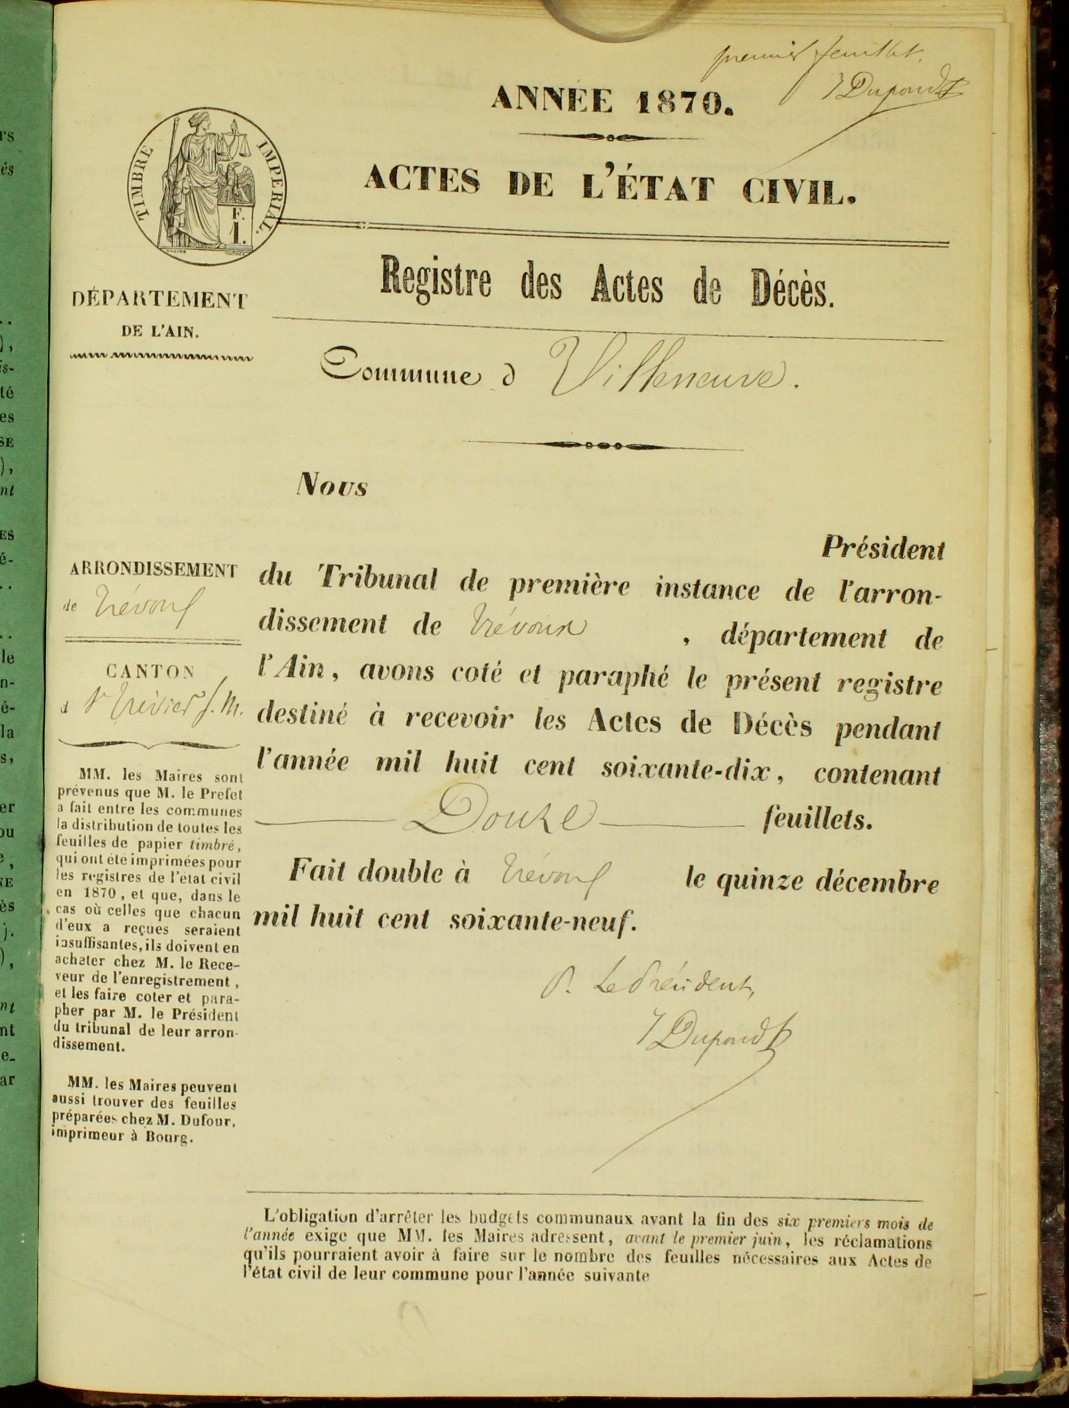 premier feuillet.
J Dupondt
ANNÉE 1870.
ACTES DE L'ÉTAT CIVIL.
TIMBRE IMPERIAL.
F.
1.
Registre des Actes de Décès.
DÉPARTEMENT
DE L'AIN.
Commune d Villeneuve.
Nous
Président
du Tribunal de première instance de l'arron-
dissement de Trévoux, département de
l'Ain, avons coté et paraphé le présent registre
destiné à recevoir les Actes de Décès pendant
l'année mil huit cent soixante-dix, contenant
Douze feuillets.
Fait double à Trévoux le quinze décembre
mil huit cent soixante-neuf.
P. Le Président,
J Dupondt
ARRONDISSEMENT
de Trévoux
CANTON
d St Trivier s. M.
MM. les Maires sont
prévenus que M. le Préfet
a fait entre les communes
la distribution de toutes les
feuilles de papier timbré,
qui ont été imprimées pour
les registres de l'état civil
en 1870, et que, dans le
cas où celles que chacun
d'eux a reçues seraient
insuffisantes, ils doivent en
acheter chez M. le Rece-
veur de l'enregistrement,
et les faire coter et para-
pher par M. le Président
du tribunal de leur arron-
dissement.
MM. les Maires peuvent
aussi trouver des feuilles
préparées chez M. Dufour,
imprimeur à Bourg.
L'obligation d'arrêter les budgets communaux avant la fin des six premiers mois de
l'année exige que MM. les Maires adressent, avant le premier juin, les réclamations
qu'ils pourraient avoir à faire sur le nombre des feuilles nécessaires aux Actes de
l'état civil de leur commune pour l'année suivante